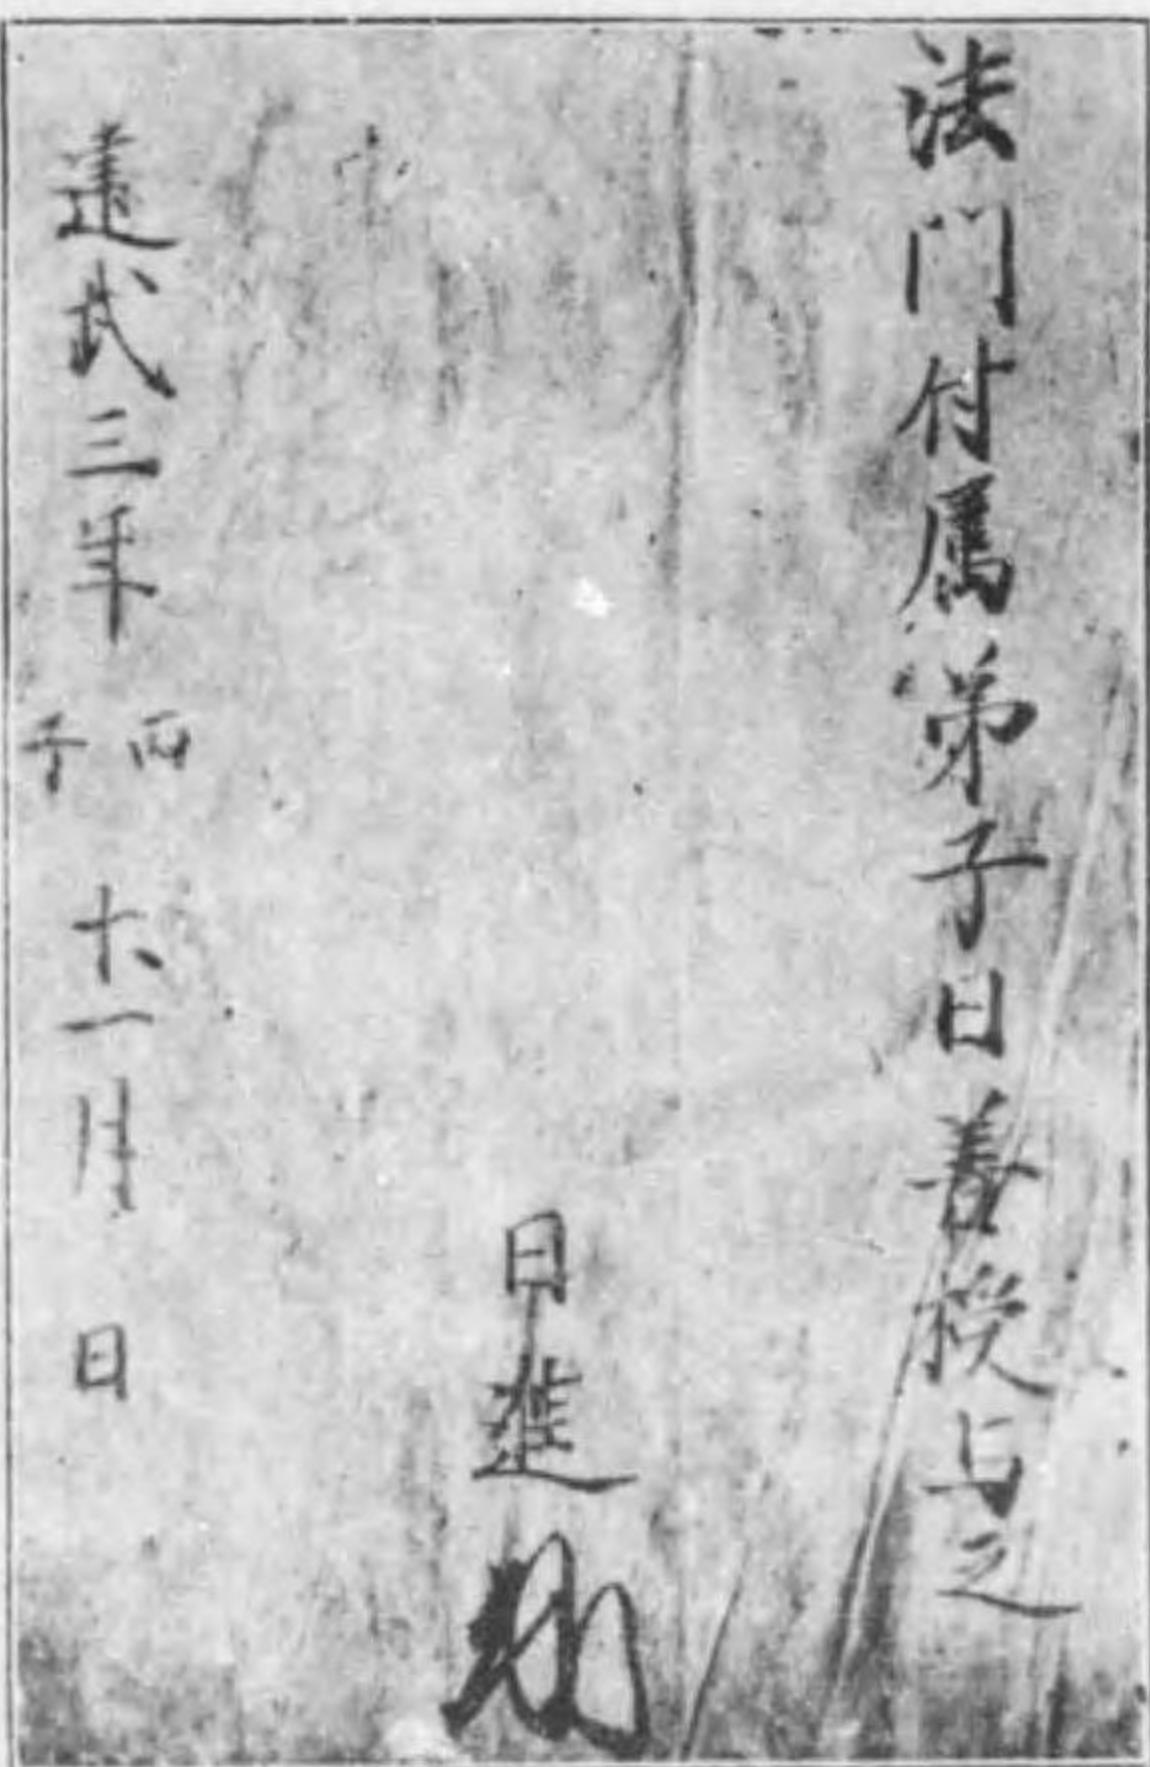 法門付属弟子日善授与之
日進
建武三年丙子十一月　日